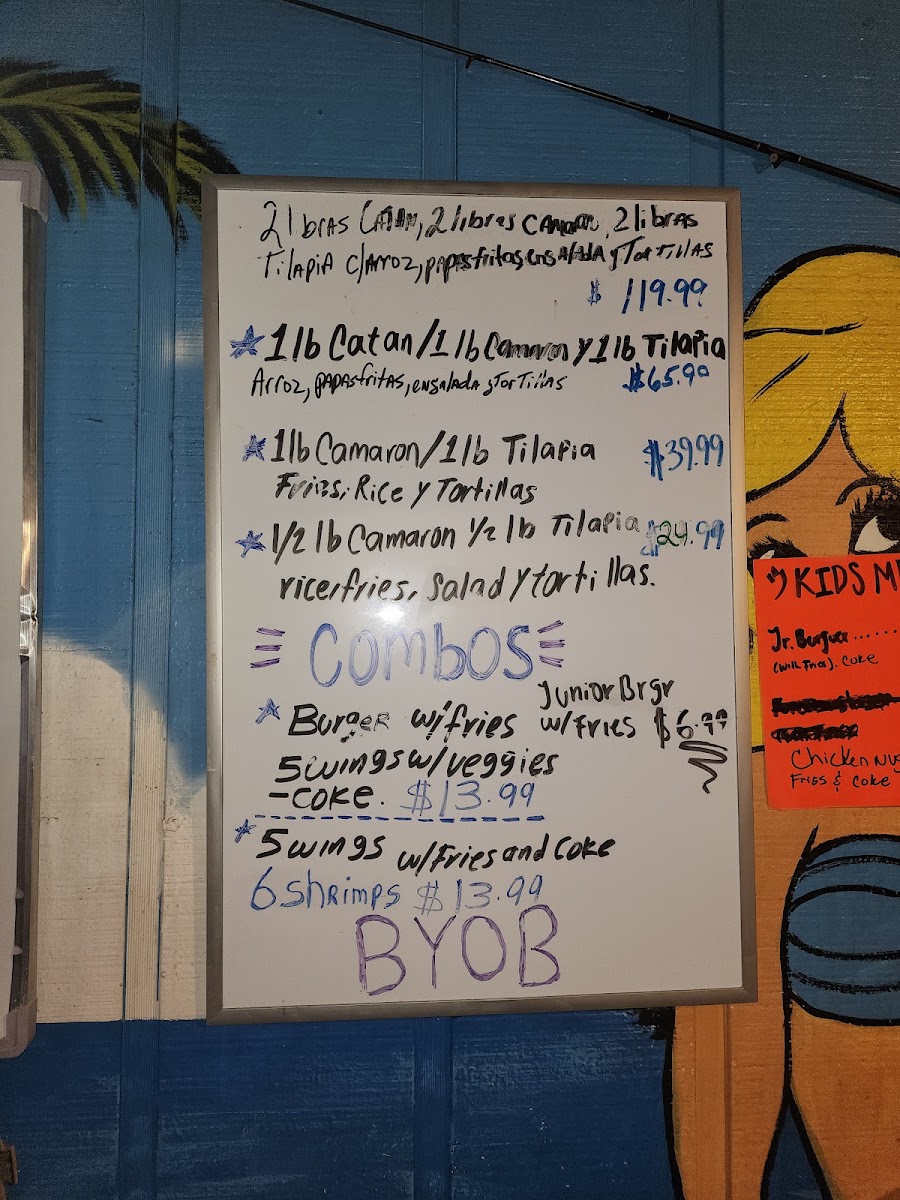 2 libras Catan, 2 libras Camaron, 2 libras
Tilapia c/Arroz, papasfritas, ensalada y Tortillas
$ 119.99
1 lb Catan/1 lb Camaron y 1 lb Tilapia
Arroz, papasfritas, ensalada y Tortillas $65.99
1lb Camaron/1 lb Tilapia $39.99
Fries, Rice y Tortillas
1/2 lb Camaron 1/2 lb Tilapia $24.99
rice/fries, Salad y tortillas.
Combos
Junior Brgr
Burger w/fries w/Fries $6.99
5 wings w/veggies
-coke. $13.99
5 wings w/Fries and Coke
6 Shrimps $13.99
BYOB
KIDS M
Jr. Burguer......
(with Fries). Coke
Chicken Nug
Fries & Coke